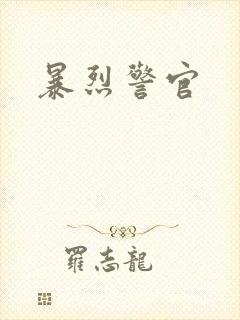 暴烈警官
羅志龍